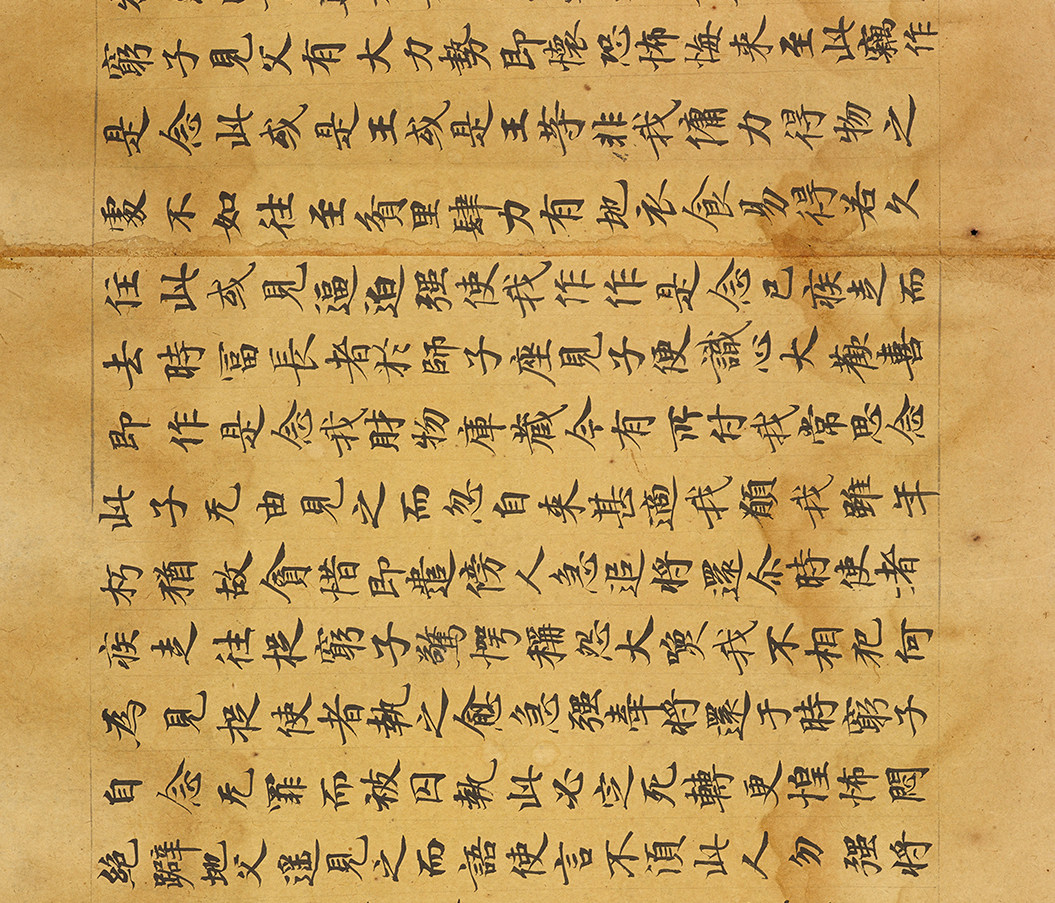 窮子見父有大力勢即懷恐怖悔来至此竊作
是念此或是王或是王等非我傭力得物之
處不如往至貧里肆力有地衣食易得若久
住此或見逼迫强使我作作是念已疾走而
去時富長者於師子座見子便識心大歡喜
即作是念我財物庫藏今有所付我常思念
此子无由見之而忽自来甚適我願我雖年
朽猶故貪惜即遣傍人急追將還尒時使者
疾走往捉窮子驚愕稱怨大喚我不相犯何
為見捉使者執之愈急强牽將還于時窮子
自念无罪而被囚執此必定死轉更惶怖悶
絕躃地父遥見之而語使言不須此人勿强將